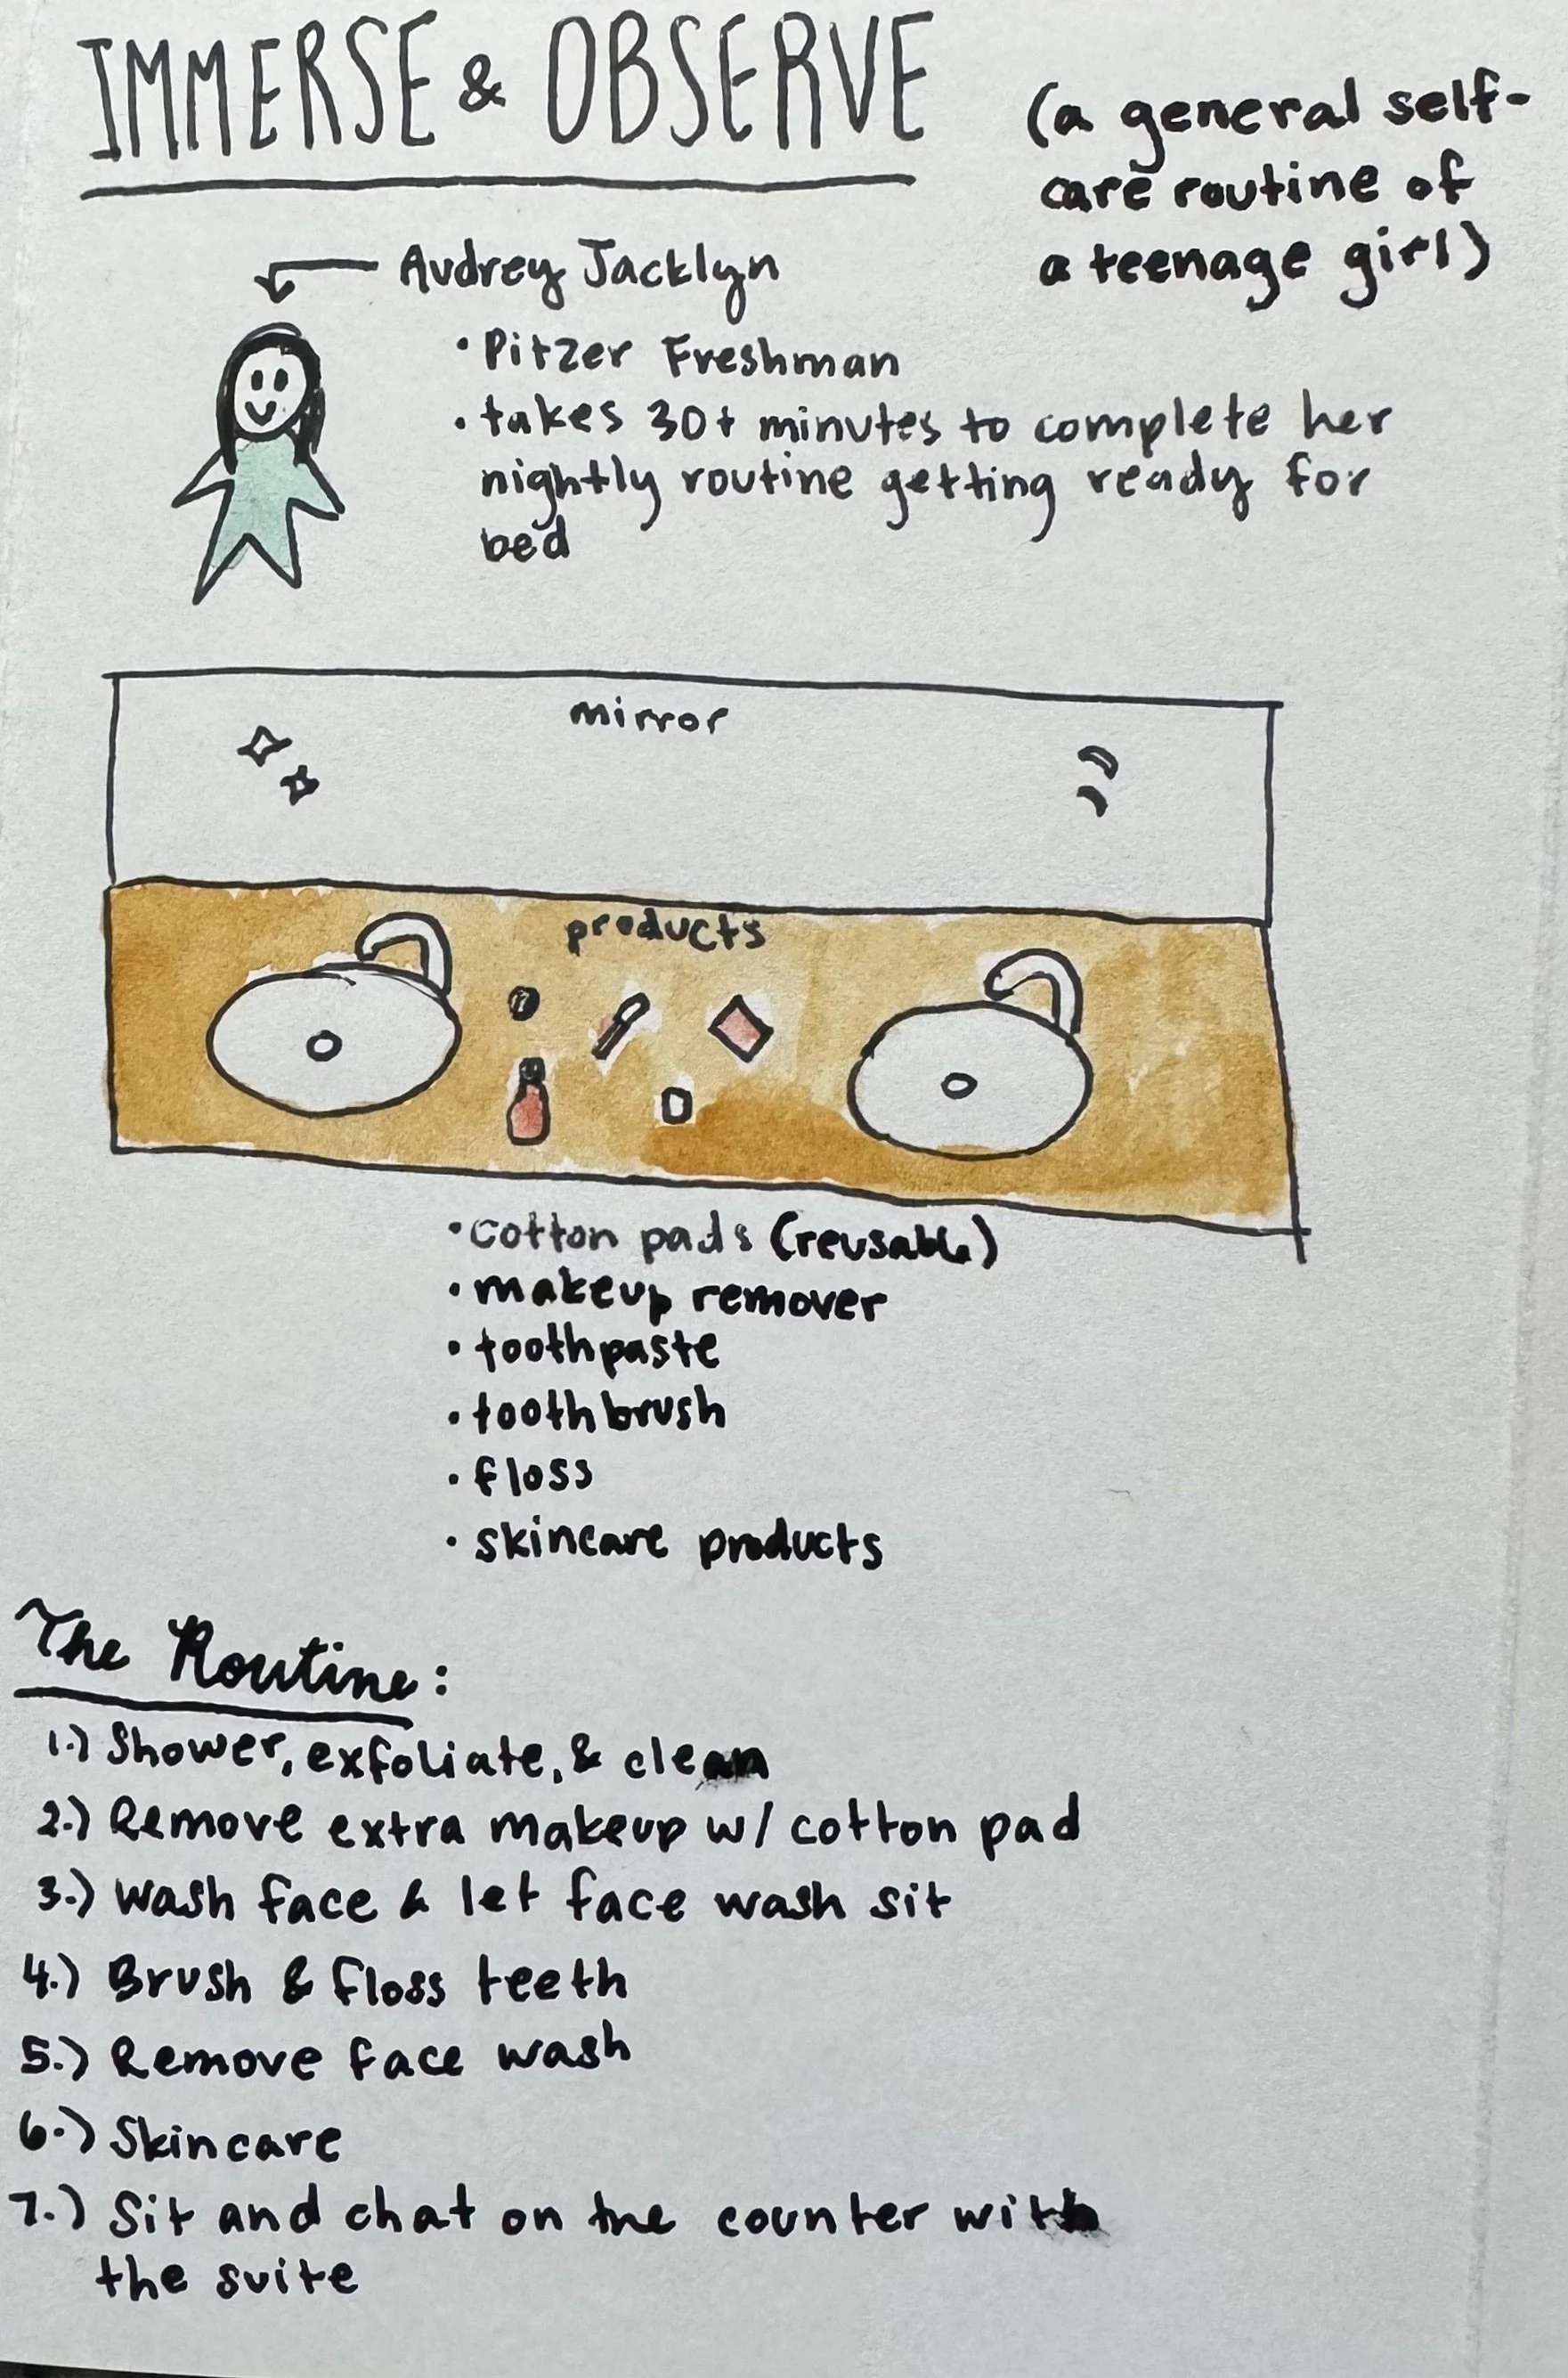 IMMERSE & OBSERVE
(a general self-
care routine of
a teenage girl)
Audrey Jacklyn
• Pitzer Freshman
• takes 30+ minutes to complete her
nightly routine getting ready for
bed
mirror
products
• cotton pads (reusable)
• makeup remover
• toothpaste
• toothbrush
• floss
• skincare products
The Routine:
1.) Shower, exfoliate, & clean
2.) Remove extra makeup w/ cotton pad
3.) Wash face & let face wash sit
4.) Brush & floss teeth
5.) Remove face wash
6.) Skincare
7.) Sit and chat on the counter with
the suite